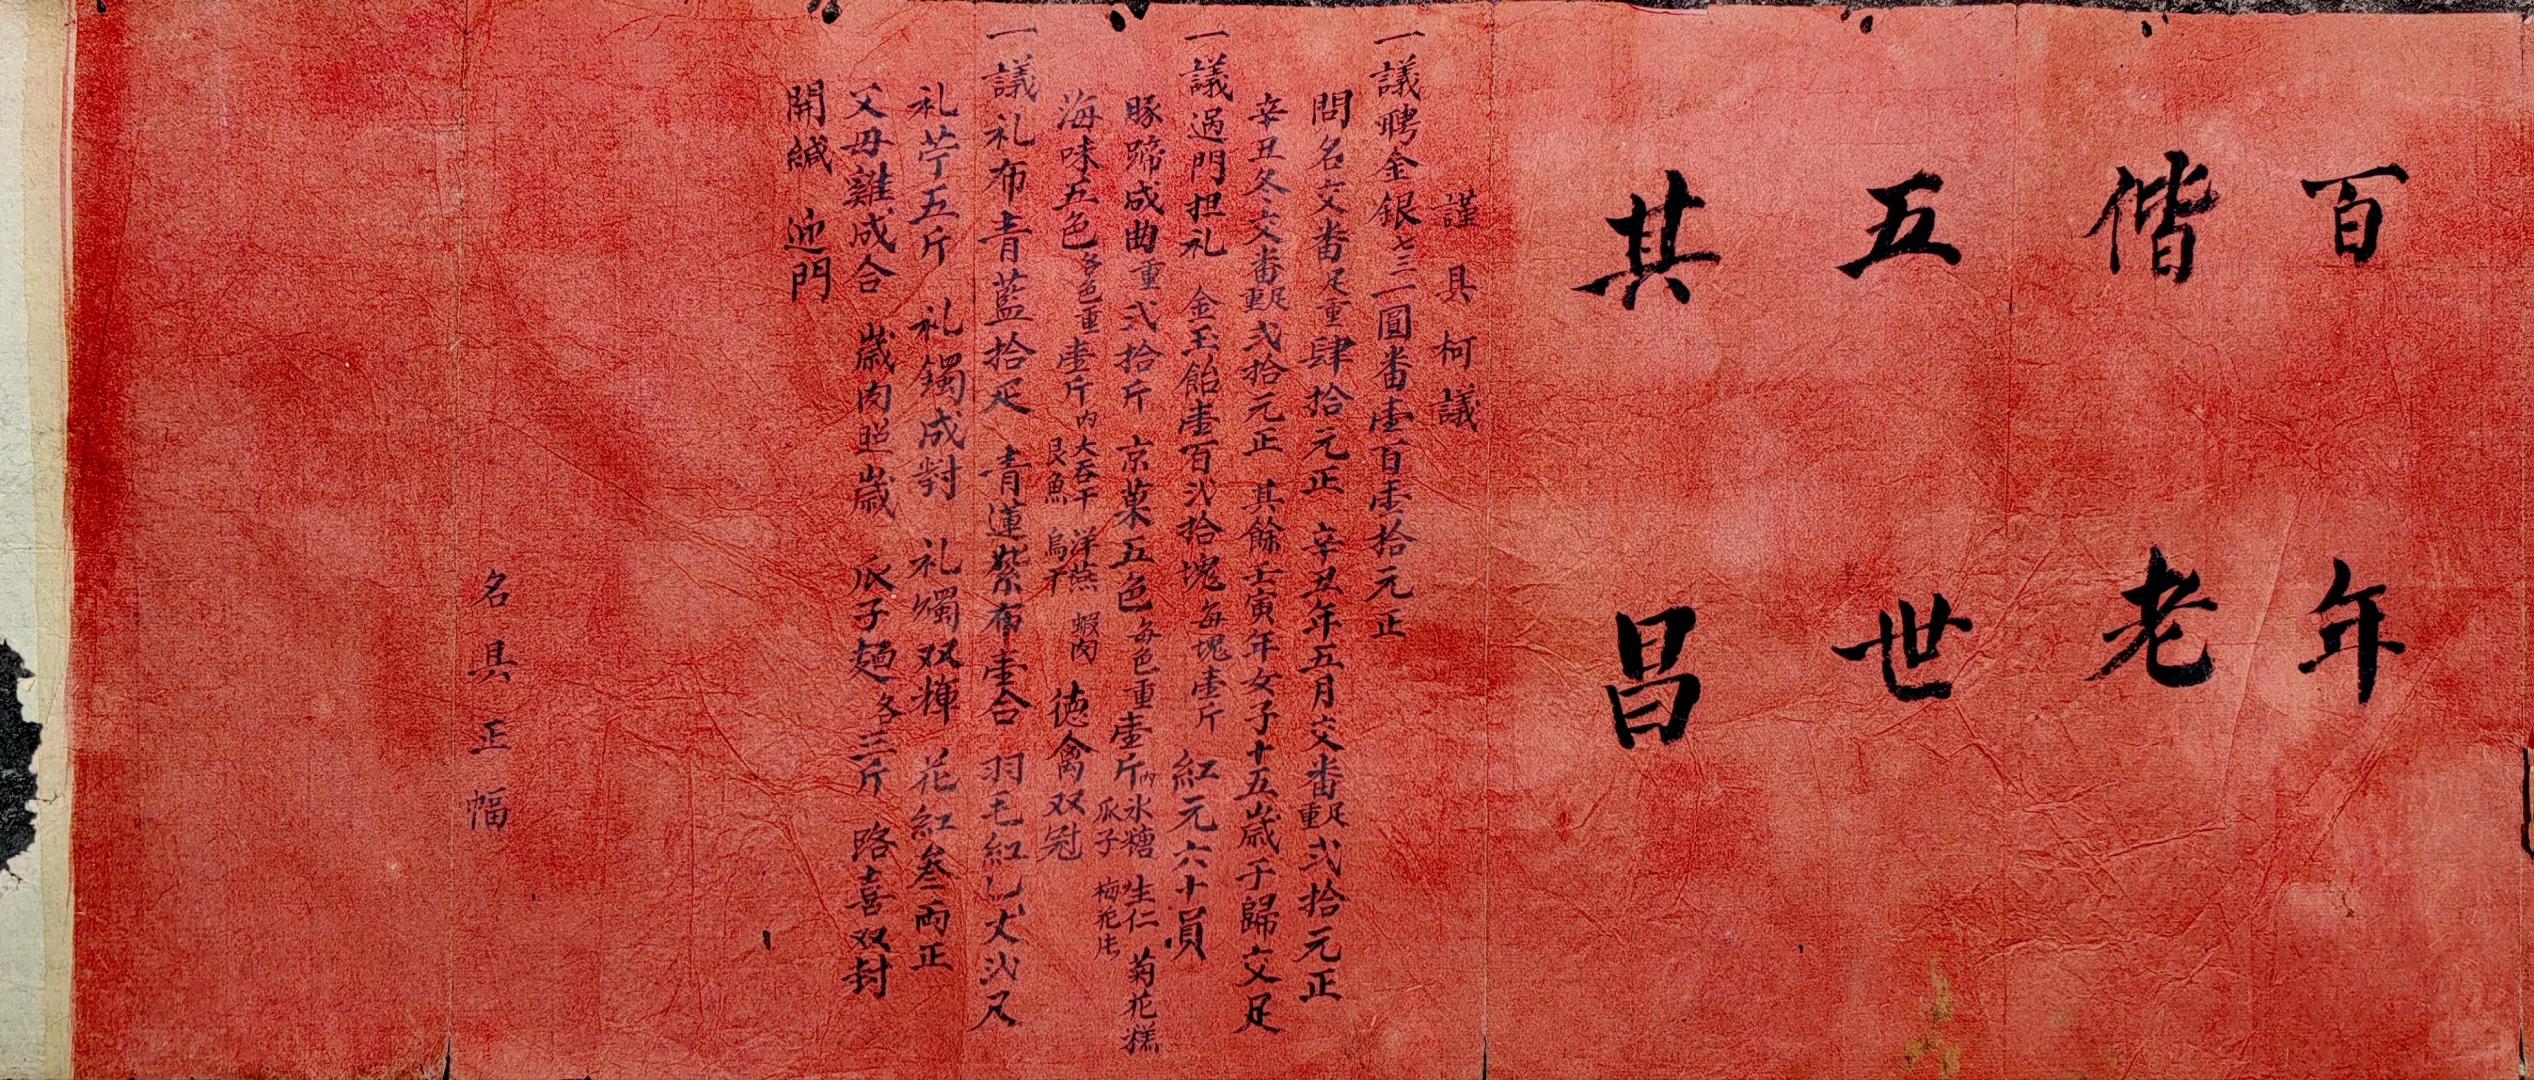 百年
偕老
五世
其昌
謹具柯議
一議聘金銀七三一圓番壹百壹拾元正
問名交番足重肆拾元正 辛丑年五月交番足重弍拾元正
辛丑冬交番足重弍拾元正 其餘壬寅年女子十五歲于歸交足
一議過門担礼 金玉飴壹百弍拾塊每塊壹斤 紅元六十員
豚蹄成曲重弍拾斤 京菓五色每色重壹斤內冰糖 生仁 菊花糕 瓜子 梅花片
海味五色每色重壹斤內大吞干 洋燕 蝦肉 艮魚 烏子 德禽双冠
一議礼布青藍拾疋 青蓮紫布壹合 羽毛紅乙丈弍尺
礼苧五斤 礼鐲成對 礼燭双輝 花紅叁両正
父母雞成合 歲肉照歲 瓜子麵各三斤 路喜双封
開緘 迎門
名具正幅